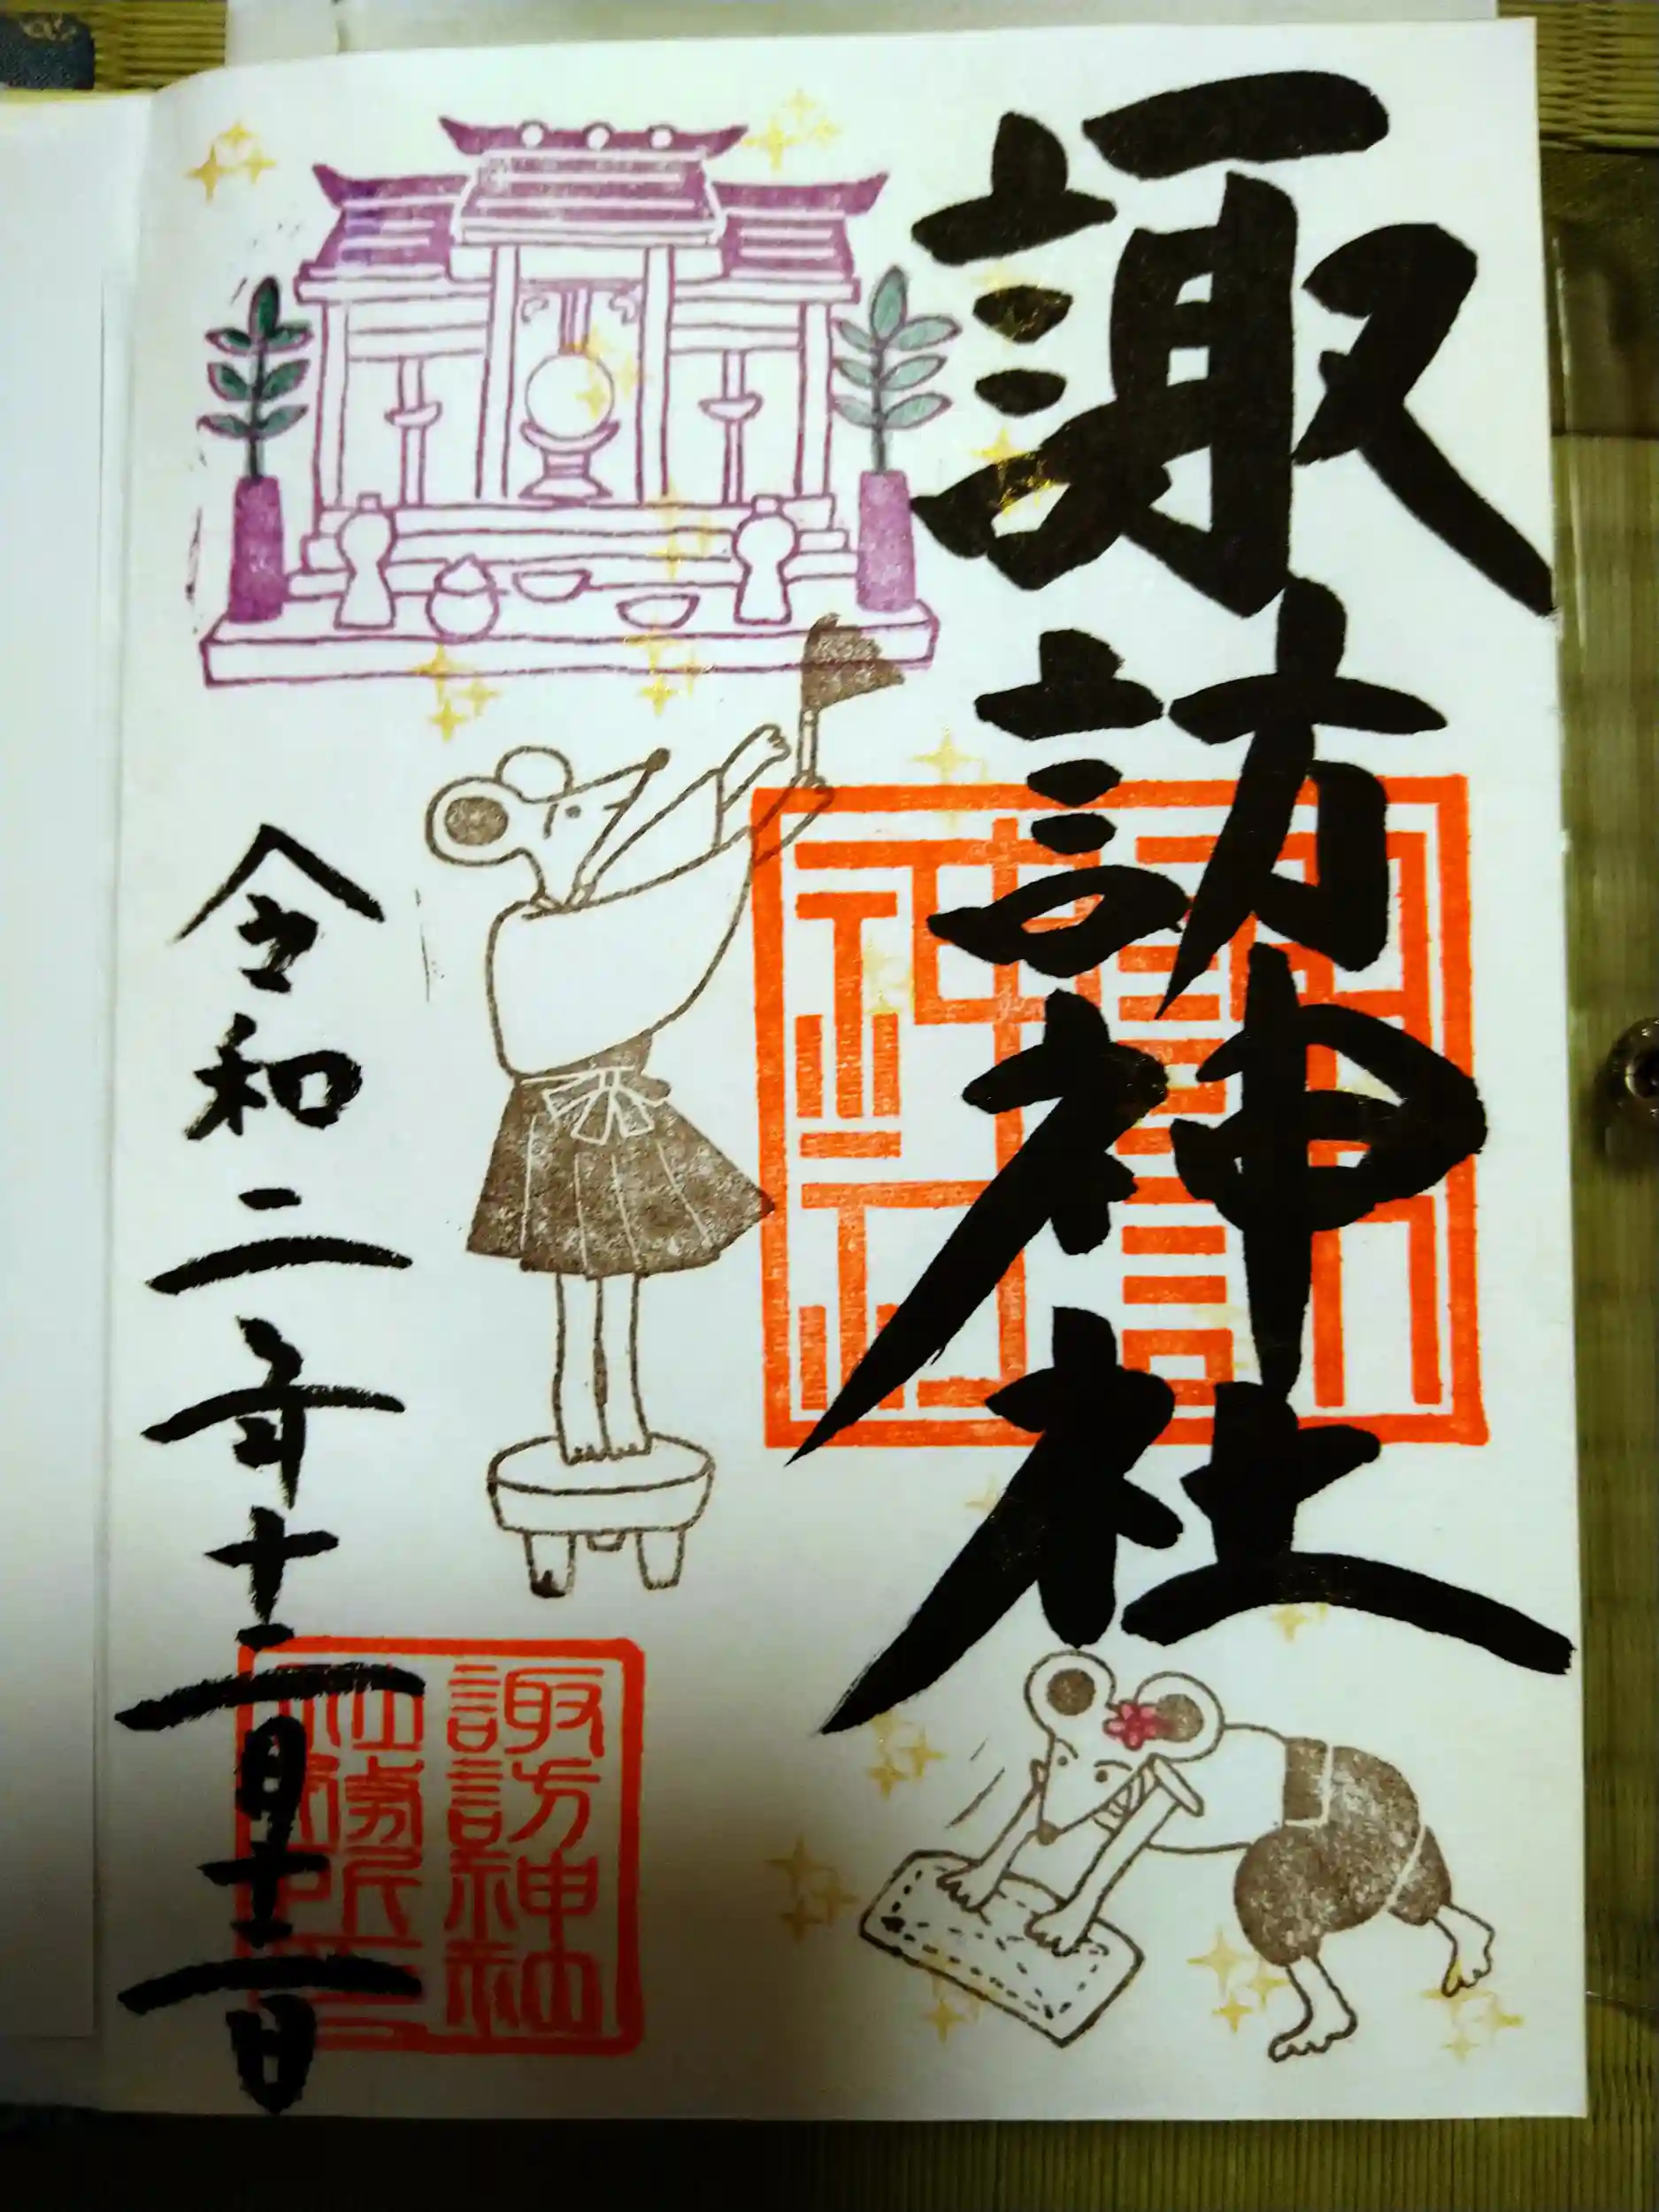 諏訪神社
諏訪神社
令和二年十二月十二日
諏訪神社
社務所